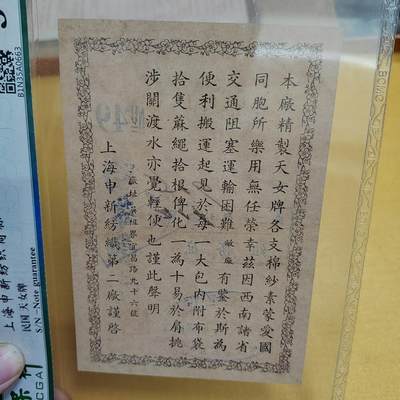 本廠精製天女牌各支棉紗素蒙愛國
同胞所樂用無任榮幸茲因西南諸省
交通阻塞運輸困難敝廠有鑒於斯為
便利搬運起見於每一大包內附布袋
拾隻蔴繩拾根俾化一為十易於肩挑
涉關渡水亦覺輕便也謹此聲明
宜昌路九十六號
上海申新紡織第二廠謹啓
B1N35A0663
民国 天女牌
S/N -Note guarantee
CGA